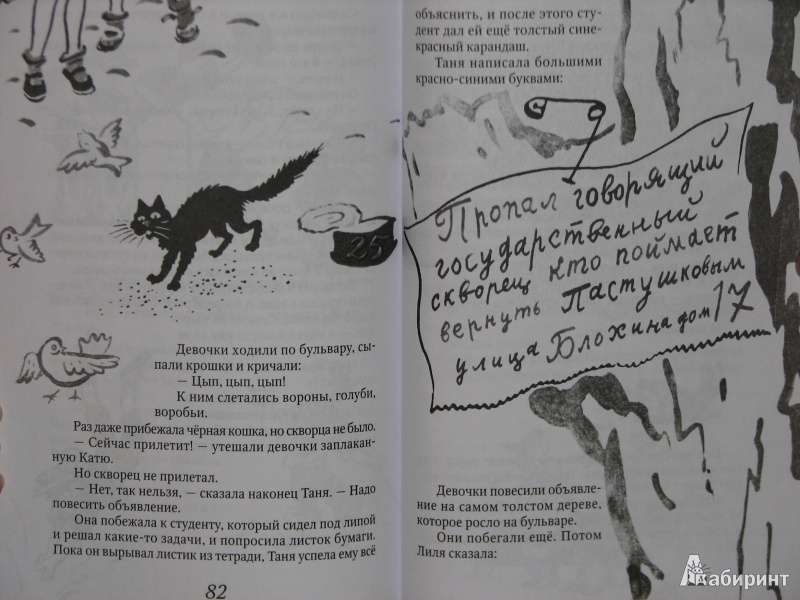 25
Девочки ходили по бульвару, сы-
пали крошки и кричали:
— Цып, цып, цып!
К ним слетались вороны, голуби,
воробьи.
Раз даже прибежала чёрная кошка, но скворца не было.
— Сейчас прилетит! — утешали девочки заплакан-
ную Катю.
Но скворец не прилетал.
— Нет, так нельзя, — сказала наконец Таня. — Надо
повесить объявление.
Она побежала к студенту, который сидел под липой
и решал какие-то задачи, и попросила листок бумаги.
Пока он вырывал листик из тетради, Таня успела ему всё
82
объяснить, и после этого сту-
дент дал ей ещё толстый сине-
красный карандаш.
Таня написала большими
красно-синими буквами:
Пропал говорящий
государственный
скворец кто поймает
вернуть Пастушковым
улица Блохина дом 17
Девочки повесили объявле-
ние на самом толстом дереве,
которое росло на бульваре.
Они побегали ещё. Потом
Лиля сказала:
Лабиринт